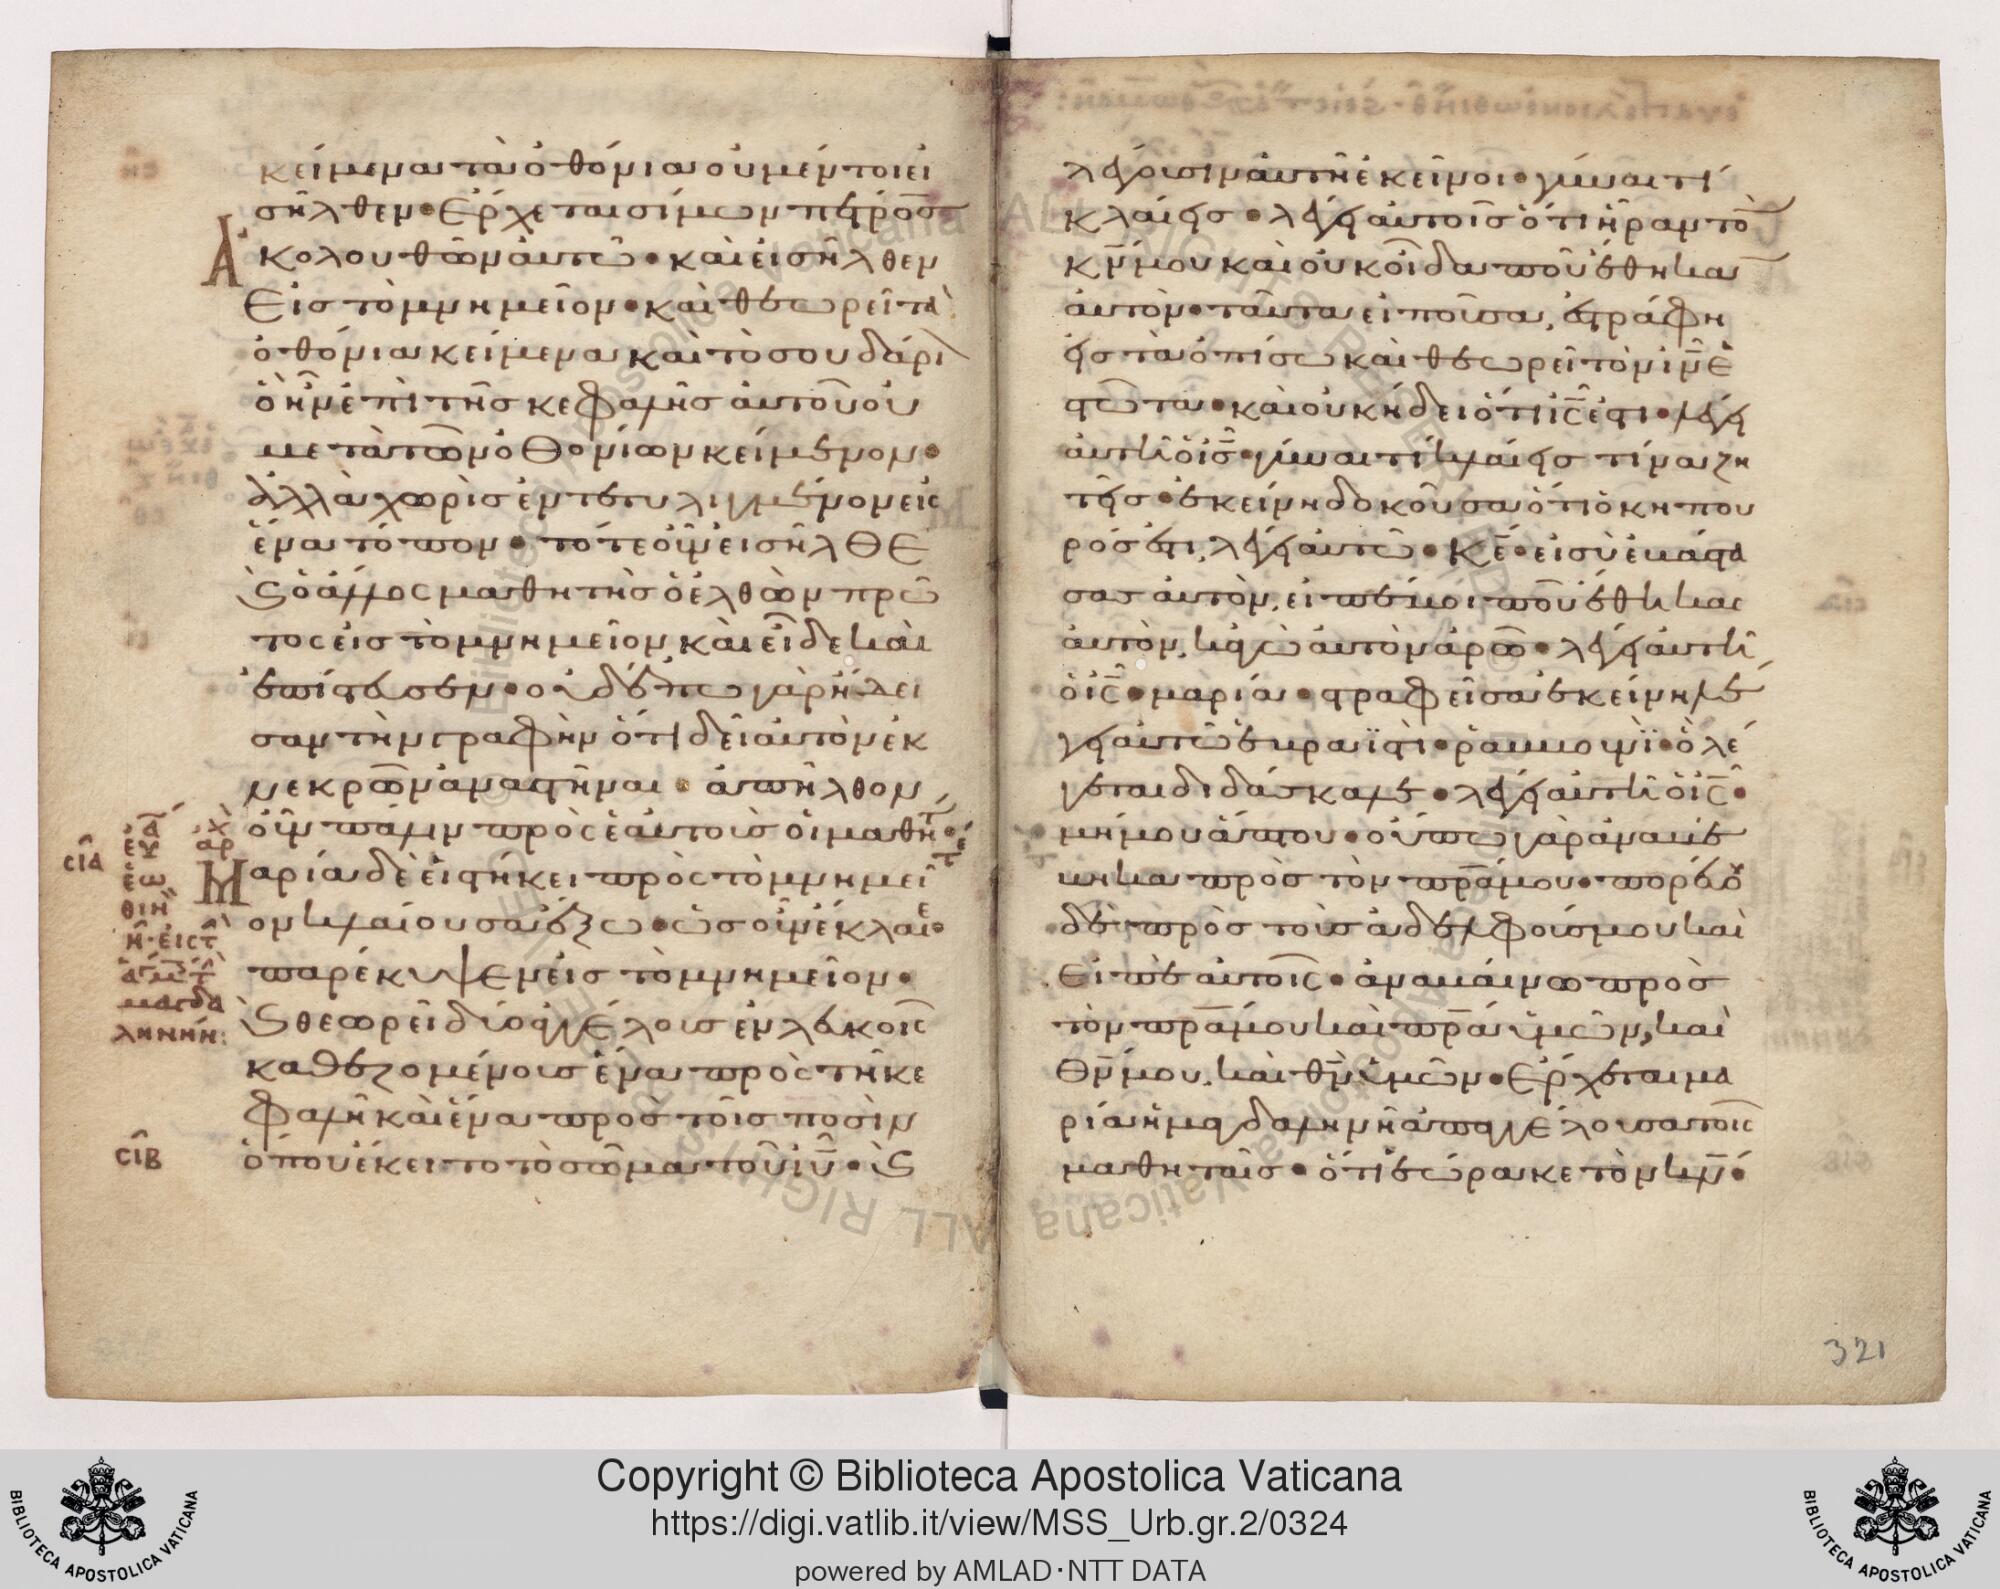 κείμενα τὰ ὀθόνια οὐ μέντοι εἰ
σῆλθεν· Ἔρχεται σίμων πέτρος
Ἀκολουθῶν αὐτῶ· καὶ εἰσῆλθεν
Εἰς τὸ μνημεῖον· καὶ θεωρεῖ τὰ
ὀθόνια κείμενα καὶ τὸ σουδάρι
ὃ ἦν ἐπὶ τῆς κεφαλῆς αὐτοῦ οὐ
μετὰ τῶν ὀθονίων κείμενον·
ἀλλὰ χωρὶς ἐντετυλιγμένον εἰς
ἕνα τόπον· τότε οὖν εἰσῆλθε
Ϛ ὁ ἄλλος μαθητὴς ὁ ἐλθὼν πρῶ
τος εἰς τὸ μνημεῖον, καὶ εἶδε καὶ
ἐπίστευσεν· οὐδέπω γὰρ ἤδει
σαν τὴν γραφὴν ὅτι δεῖ αὐτὸν ἐκ
νεκρῶν ἀναστῆναι· ἀπῆλθον
οὖν πάλιν πρὸς ἑαυτοὺς οἱ μαθηταί·
Μαρία δὲ εἱστήκει πρὸς τὸ μνημεῖ
ον κλαίουσα ἔξω· ὡς οὖν ἔκλαιε·
παρέκυψεν εἰς τὸ μνημεῖον·
Ϛ θεωρεῖ δύο ἀγγέλους ἐν λευκοῖς
καθεζομένους ἕνα πρὸς τῆ κε
φαλῆ καὶ ἕνα πρὸς τοῖς ποσὶν
ὅπου ἔκειτο τὸ σῶμα τοῦ ιυ· Ϛ
σια
ἐωθιν
η· εἰς τ
μαγδα
ληνήν:
σιβ
λέγουσιν αὐτῆ ἐκεῖνοι· γύναι τί
κλαίεις· λέγει αὐτοῖς ὅτι ἦραν τὸ
κν μου καὶ οὐκ οἶδα ποῦ ἔθηκαν
αὐτόν· ταῦτα εἰποῦσα, ἐστράφη
εἰς τὰ ὀπίσω καὶ θεωρεῖ τὸν ιν ἑ
στῶτα· καὶ οὐκ ἤδει ὅτι ις ἐστι· λέγει
αὐτῆ ὁ ις· γύναι τί κλαίεις τίνα ζη
τεῖς· ἐκείνη δοκοῦσα ὅτι ὁ κηπου
ρός ἐστι, λέγει αὐτῶ· κε· εἰ σὺ ἐβάστα
σας αὐτὸν, εἰπέ μοι ποῦ ἔθηκας
αὐτὸν, κἀγὼ αὐτὸν ἀρῶ· λέγει αὐτῆ
ὁ ις· μαρία· στραφεῖσα ἐκείνη λέ
γει αὐτῶ ἑβραϊστὶ· ῥαββουνὶ· ὃ λέ
γεται διδάσκαλε· λέγει αὐτῆ ὁ ις·
μή μου ἅπτου· οὔπω γὰρ ἀναβέ
βηκα πρὸς τὸν πρα μου· πορεύου
δὲ πρὸς τοὺς ἀδελφούς μου καὶ
εἰπὲ αὐτοῖς· ἀναβαίνω πρὸς
τὸν πρα μου καὶ πρα ὑμῶν, καὶ
θν μου, καὶ θν ὑμῶν· Ἔρχεται μα
ρία ἡ μαγδαληνὴ ἀπαγγέλουσα τοῖς
μαθηταῖς· ὅτι ἑώρακε τὸν κν·
321
Copyright © Biblioteca Apostolica Vaticana
https://digi.vatlib.it/view/MSS_Urb.gr.2/0324
powered by AMLAD·NTT DATA
BIBLIOTECA APOSTOLICA VATICANA
BIBLIOTECA APOSTOLICA VATICANA